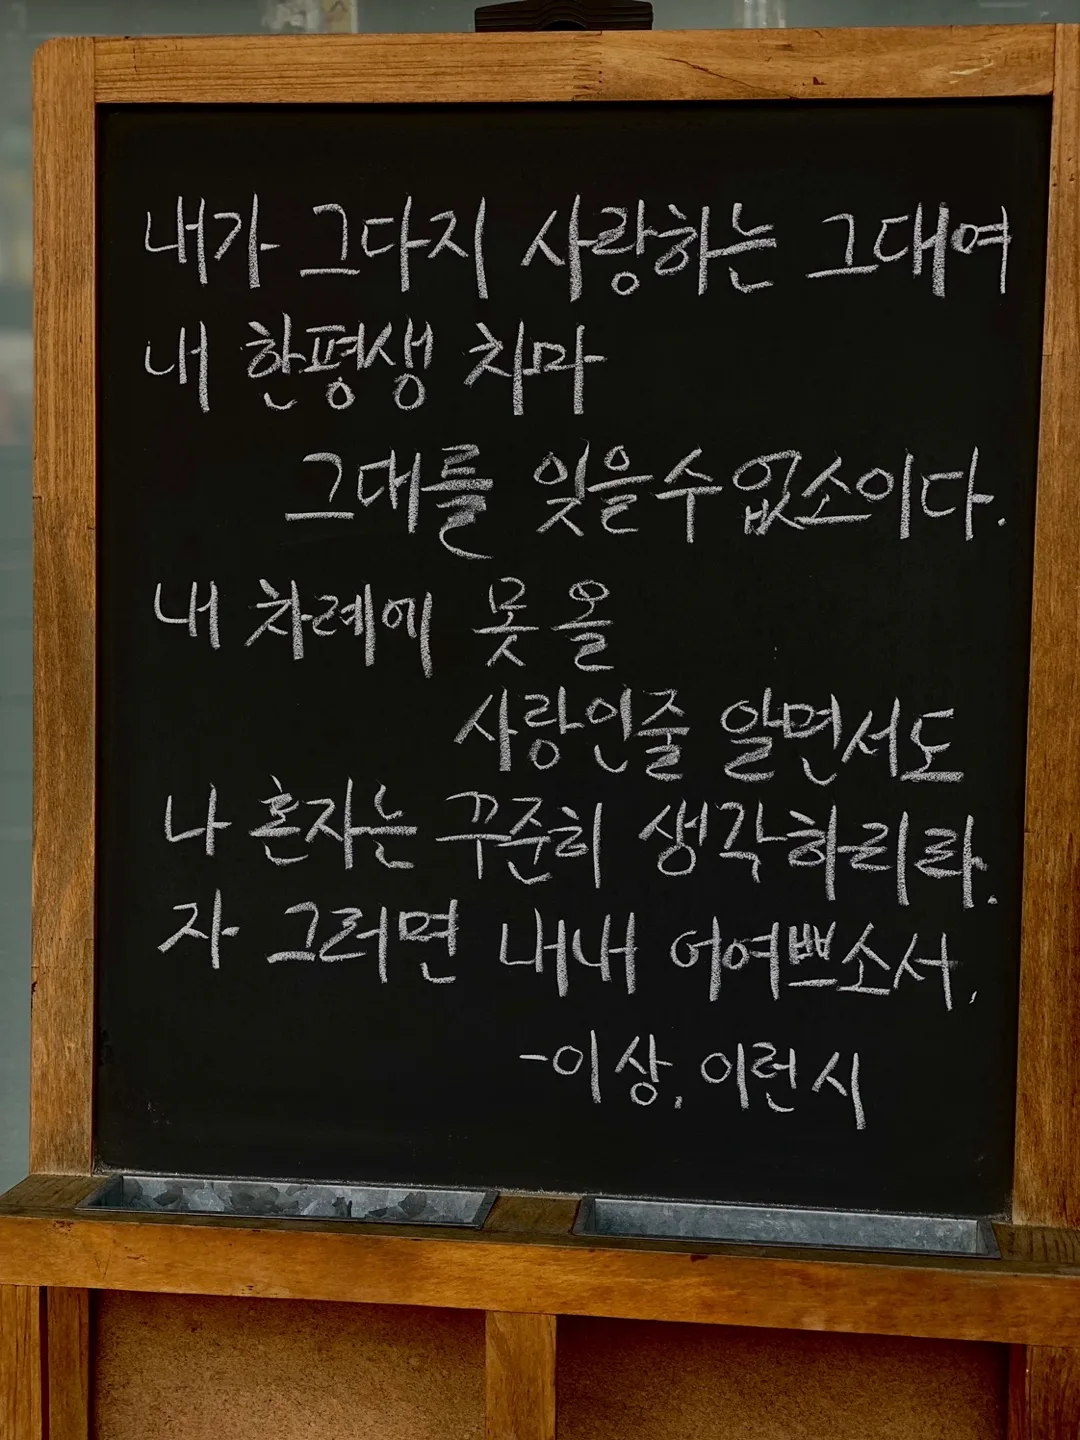 내가 그다지 사랑하는 그대여
내 한평생 차마
그대를 잊을수 없소이다.
내 차례에 못 올
사랑인줄 알면서도
나 혼자는 꾸준히 생각하리라.
자 그러면 내내 어여쁘소서.
-이상, 이런시